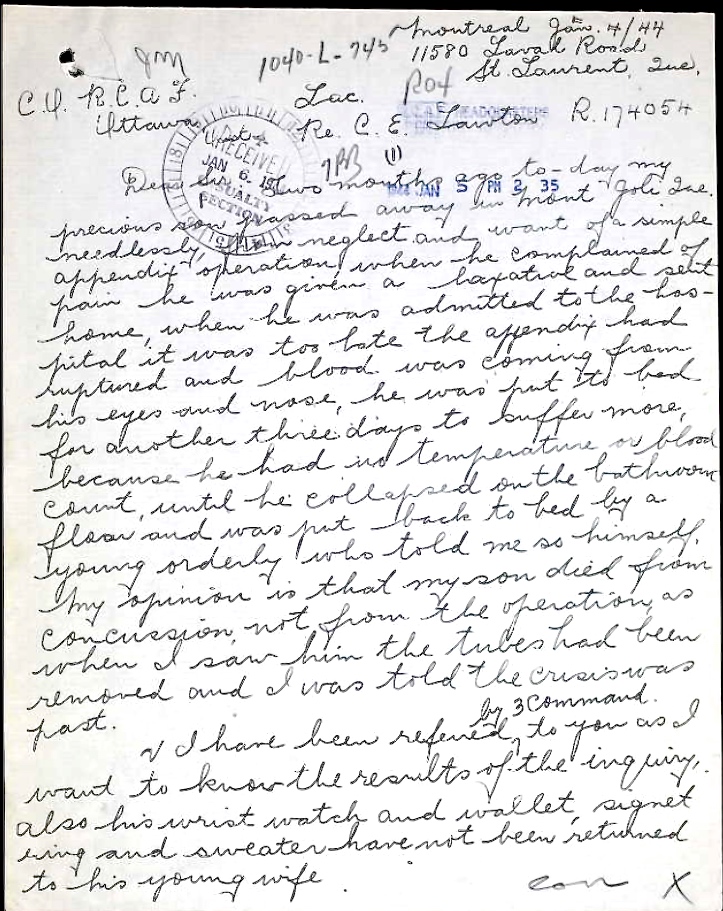 Montreal Jan. 4/44
11580 Laval Road
St. Laurent, Que.
JM
1040-L-745
C.O. R.C.A.F.
Ottawa
Lac.
Re. C. E. Lawton R.174054
RECEIVED
JAN 6. 19
CASUALTY
SECTION
HEADQUARTERS
JAN 5 PM 2 35
(1)
Dear Sir, Two months ago to-day my
precious son passed away in Mont Joli Que.
needlessly, from neglect and want of a simple
appendix operation, when he complained of
pain he was given a laxative and sent
home, when he was admitted to the hos-
pital it was too late the appendix had
ruptured and blood was coming from
his eyes and nose, he was put to bed
for another three days to suffer more,
because he had no temperature or blood
count, until he collapsed on the bathroom
floor and was put back to bed by a
young orderly who told me so himself.
My opinion is that my son died from
concussion, not from the operation, as
when I saw him the tubes had been
removed and I was told the crisis was
past.
by 3 Command.
I have been referred, to you as I
want to know the results of the inquiry,
also his wrist watch and wallet, signet
ring and sweater have not been returned
to his young wife.
con X